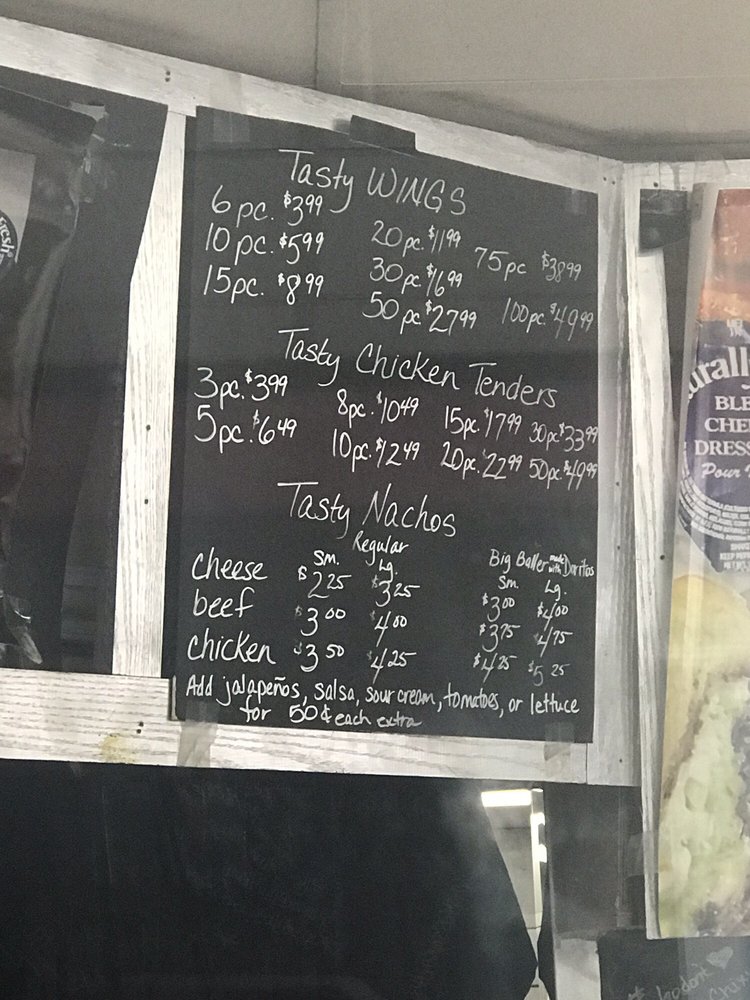 Tasty WINGS
6 pc. $3.99
10 pc. $5.99
15pc. $8.99
20pc. $11.99
30pc. $16.99
50 pc. $27.99
75pc $38.99
100pc. $49.99
Tasty Chicken Tenders
3pc. $3.99
5pc. $6.49
8pc. $10.49
10pc. $12.49
15pc. $17.99
20pc. $22.99
30pc $33.99
50pc. $49.99
Tasty Nachos
Regular
Sm. Lg.
Big Baller made with Doritos
Sm. Lg.
cheese $2.25 $3.25 $3.00 $4.00
beef $3.00 $4.00 $3.75 $4.75
chicken $3.50 $4.25 $4.25 $5.25
Add jalapeños, salsa, sour cream, tomatoes, or lettuce
for 50¢ each extra
Fresh
BLE
CHE
DRESS
Pour